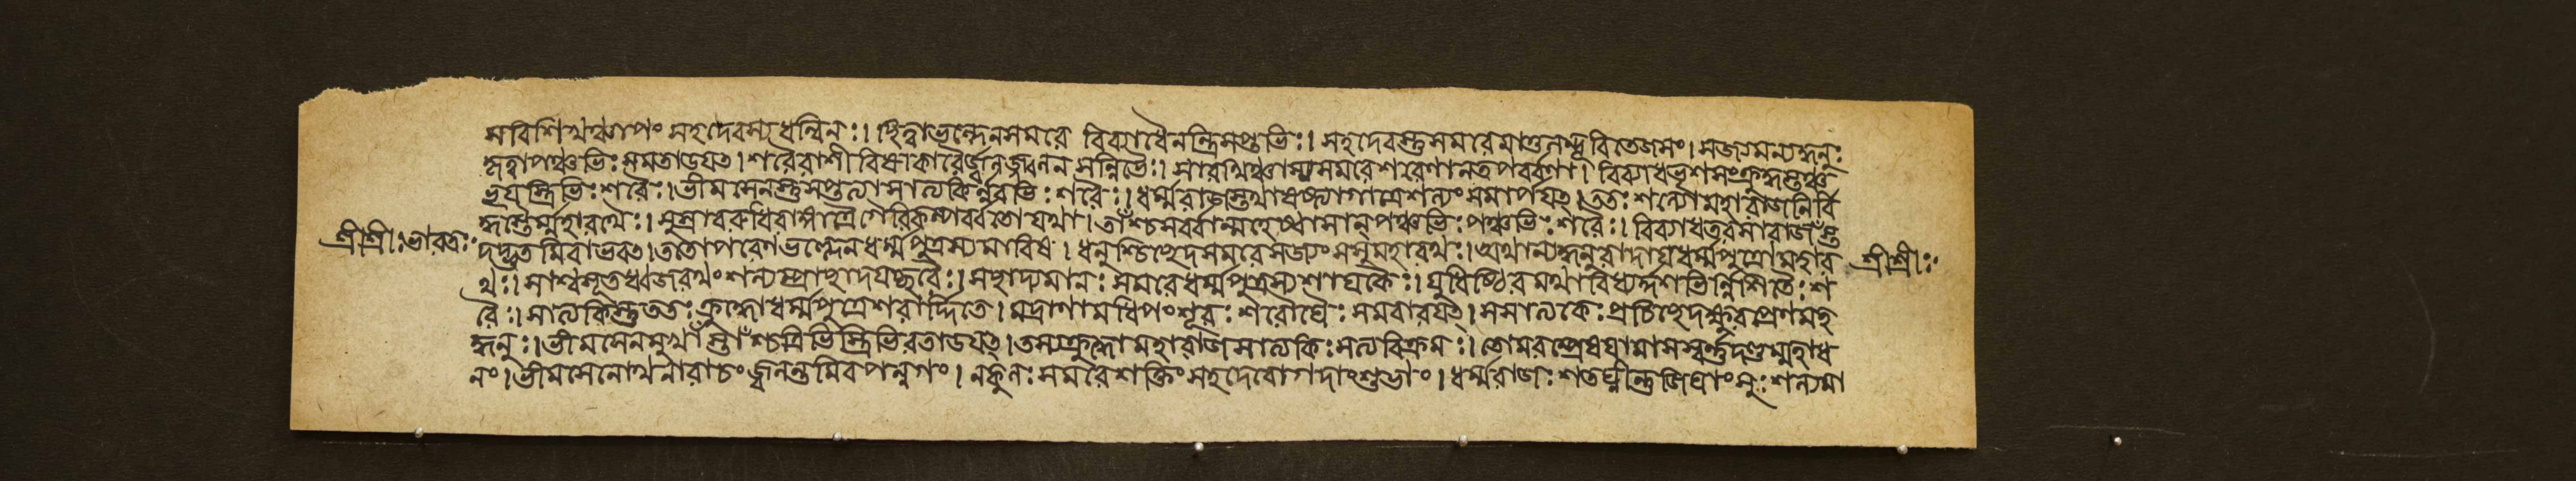 সবিশিখঞ্চাপং সহদেবস্য ধন্বিনঃ। ছিত্বা ভল্লেন সমরে বিব্যাধৈনন্ত্রিসপ্তভিঃ। সহদেবস্তু সমরে মাতুলম্ভূরিতেজসং। সজ্যমন্যদ্ধনুঃ
কৃত্বা পঞ্চভিঃ সমতাডযত। শরৈরাশীবিষাকারৈর্জ্বলজ্জ্বলন সন্নিভৈঃ। সারথিঞ্চাস্য সমরে শরেণানতপর্ব্বণা। বিব্যাধ ভৃশসংক্রুদ্ধস্তঞ্চ
ভূযস্ত্রিভিঃ শরৈঃ। ভীমসেনস্তু সপ্তত্যা সাত্যকির্ন্নবভিঃ শরৈঃ। ধর্ম্মরাজস্তথা ষষ্ট্যা গাত্রে শল্যং সমার্পযৎ। ততঃ শল্যো মহারাজ নির্বি
দ্ধস্তৈর্ম্মহারথৈঃ। সুস্রাব রুধিরং গাত্রৈর্গৈরিকম্পর্ব্বতো যথা। তাঁশ্চ সর্বান্মহেষ্বাসান্ পঞ্চভিঃ পঞ্চভিঃ শরৈঃ। বিব্যাধ তরসা রাজঁস্ত
শ্রীশ্রীঃ ভারতঃ দদ্ভুতমিবাভবৎ। ততোপরেণ ভল্লেন ধর্ম্মপুত্রস্য মারিষ। ধনুশ্চিচ্ছেদ সমরে সজ্যং স সুমহারথঃ। অথান্যদ্ধনুরাদায ধর্ম্মপুত্রো মহার শ্রীশ্রীঃ
থঃ। সাশ্বসূতধ্বজরথং শল্যম্প্রাচ্ছাদযচ্ছরৈঃ। সচ্ছাদ্যমানঃ সমরে ধর্ম্মপুত্রস্য শাযকৈঃ। যুধিষ্ঠিরমথাবিধ্যদ্দশভির্ন্নিশিতৈঃ শ
রৈঃ। সাত্যকিস্তু ততঃ ক্রুদ্ধো ধর্ম্মপুত্রে শরার্দ্দিতে। মদ্রাণামধিপং শূরঃ শরৌঘৈঃ সমবারযৎ। স সাত্যকেঃ প্রচিচ্ছেদ ক্ষুরপ্রেণ মহ
দ্ধনুঃ। ভীমসেনমুখাঁস্তাঁশ্চ ত্রিভিস্ত্রিভিরতাডযৎ। তস্য ক্রুদ্ধো মহারাজ সাত্যকিঃ সত্যবিক্রমঃ। তোমরম্প্রেষযামাস স্বর্ন্নদণ্ডম্মহাধ
নং। ভীমসেনোথ নারাচং জ্বলন্তমিব পন্নগং। নকুলঃ সমরে শক্তিং সহদেবো গদাং শুভাং। ধর্ম্মরাজঃ শতঘ্নীন্তু জিঘাংসুঃ শল্যমা